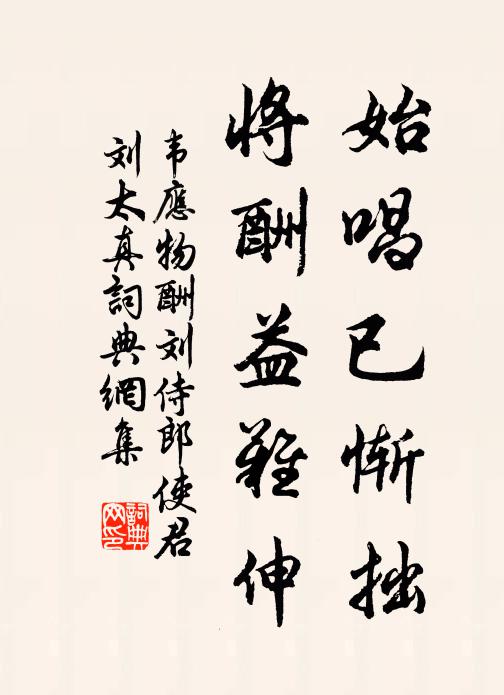 始唱已惭拙
将酬益难伸
韦應物酬刘侍郎使君
刘太真詞典網集
詞典网印